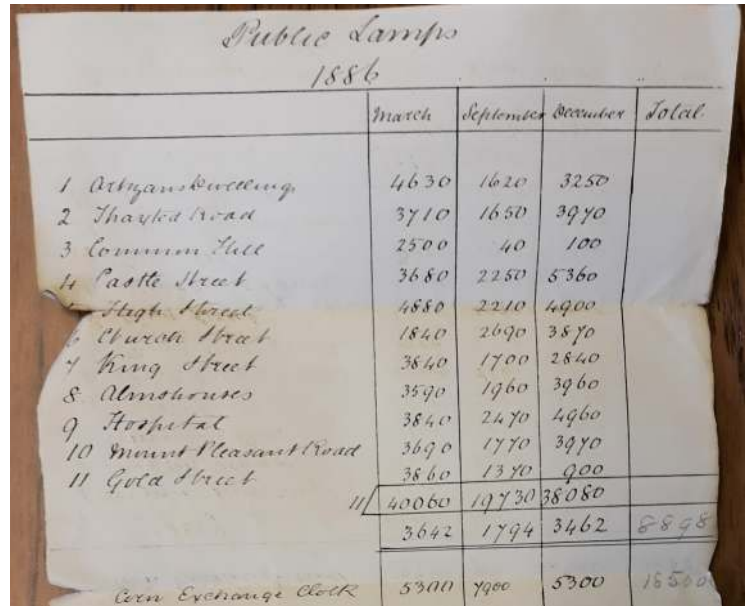 Public Lamps
1886
March September December Total
1 Artizans Dwellings 4630 1620 3250
2 Thaxted Road 3710 1650 3970
3 Common Hill 2500 40 100
4 Castle Street 3680 2250 5360
5 High Street 4880 2210 4900
6 Church Street 1840 2690 3870
7 King Street 3840 1700 2840
8 Almshouses 3590 1960 3960
9 Hospital 3840 2470 4960
10 Mount Pleasant Road 3690 1770 3970
11 Gold Street 3860 1370 900
11 40060 19730 38080
3642 1794 3462 8898
Corn Exchange Clock 5300 7900 5300